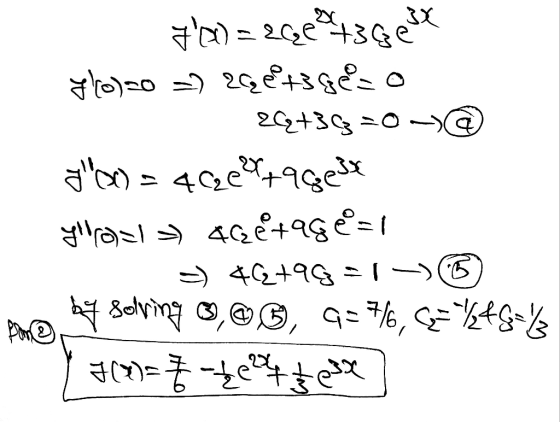 y'(x) = 2C₂e^{2x} + 3C₃e^{3x}
y'(0)=0 ⇒ 2C₂e⁰+3C₃e⁰ = 0
2C₂+3C₃ = 0 → ④
y''(x) = 4C₂e^{2x} + 9C₃e^{3x}
y''(0)=1 ⇒ 4C₂e⁰+9C₃e⁰ = 1
⇒ 4C₂+9C₃ = 1 → ⑤
by solving ③, ④, ⑤, C₁ = 7/6, C₂ = -1/2 & C₃ = 1/3
y(x) = 7/6 - 1/2 e^{2x} + 1/3 e^{3x}